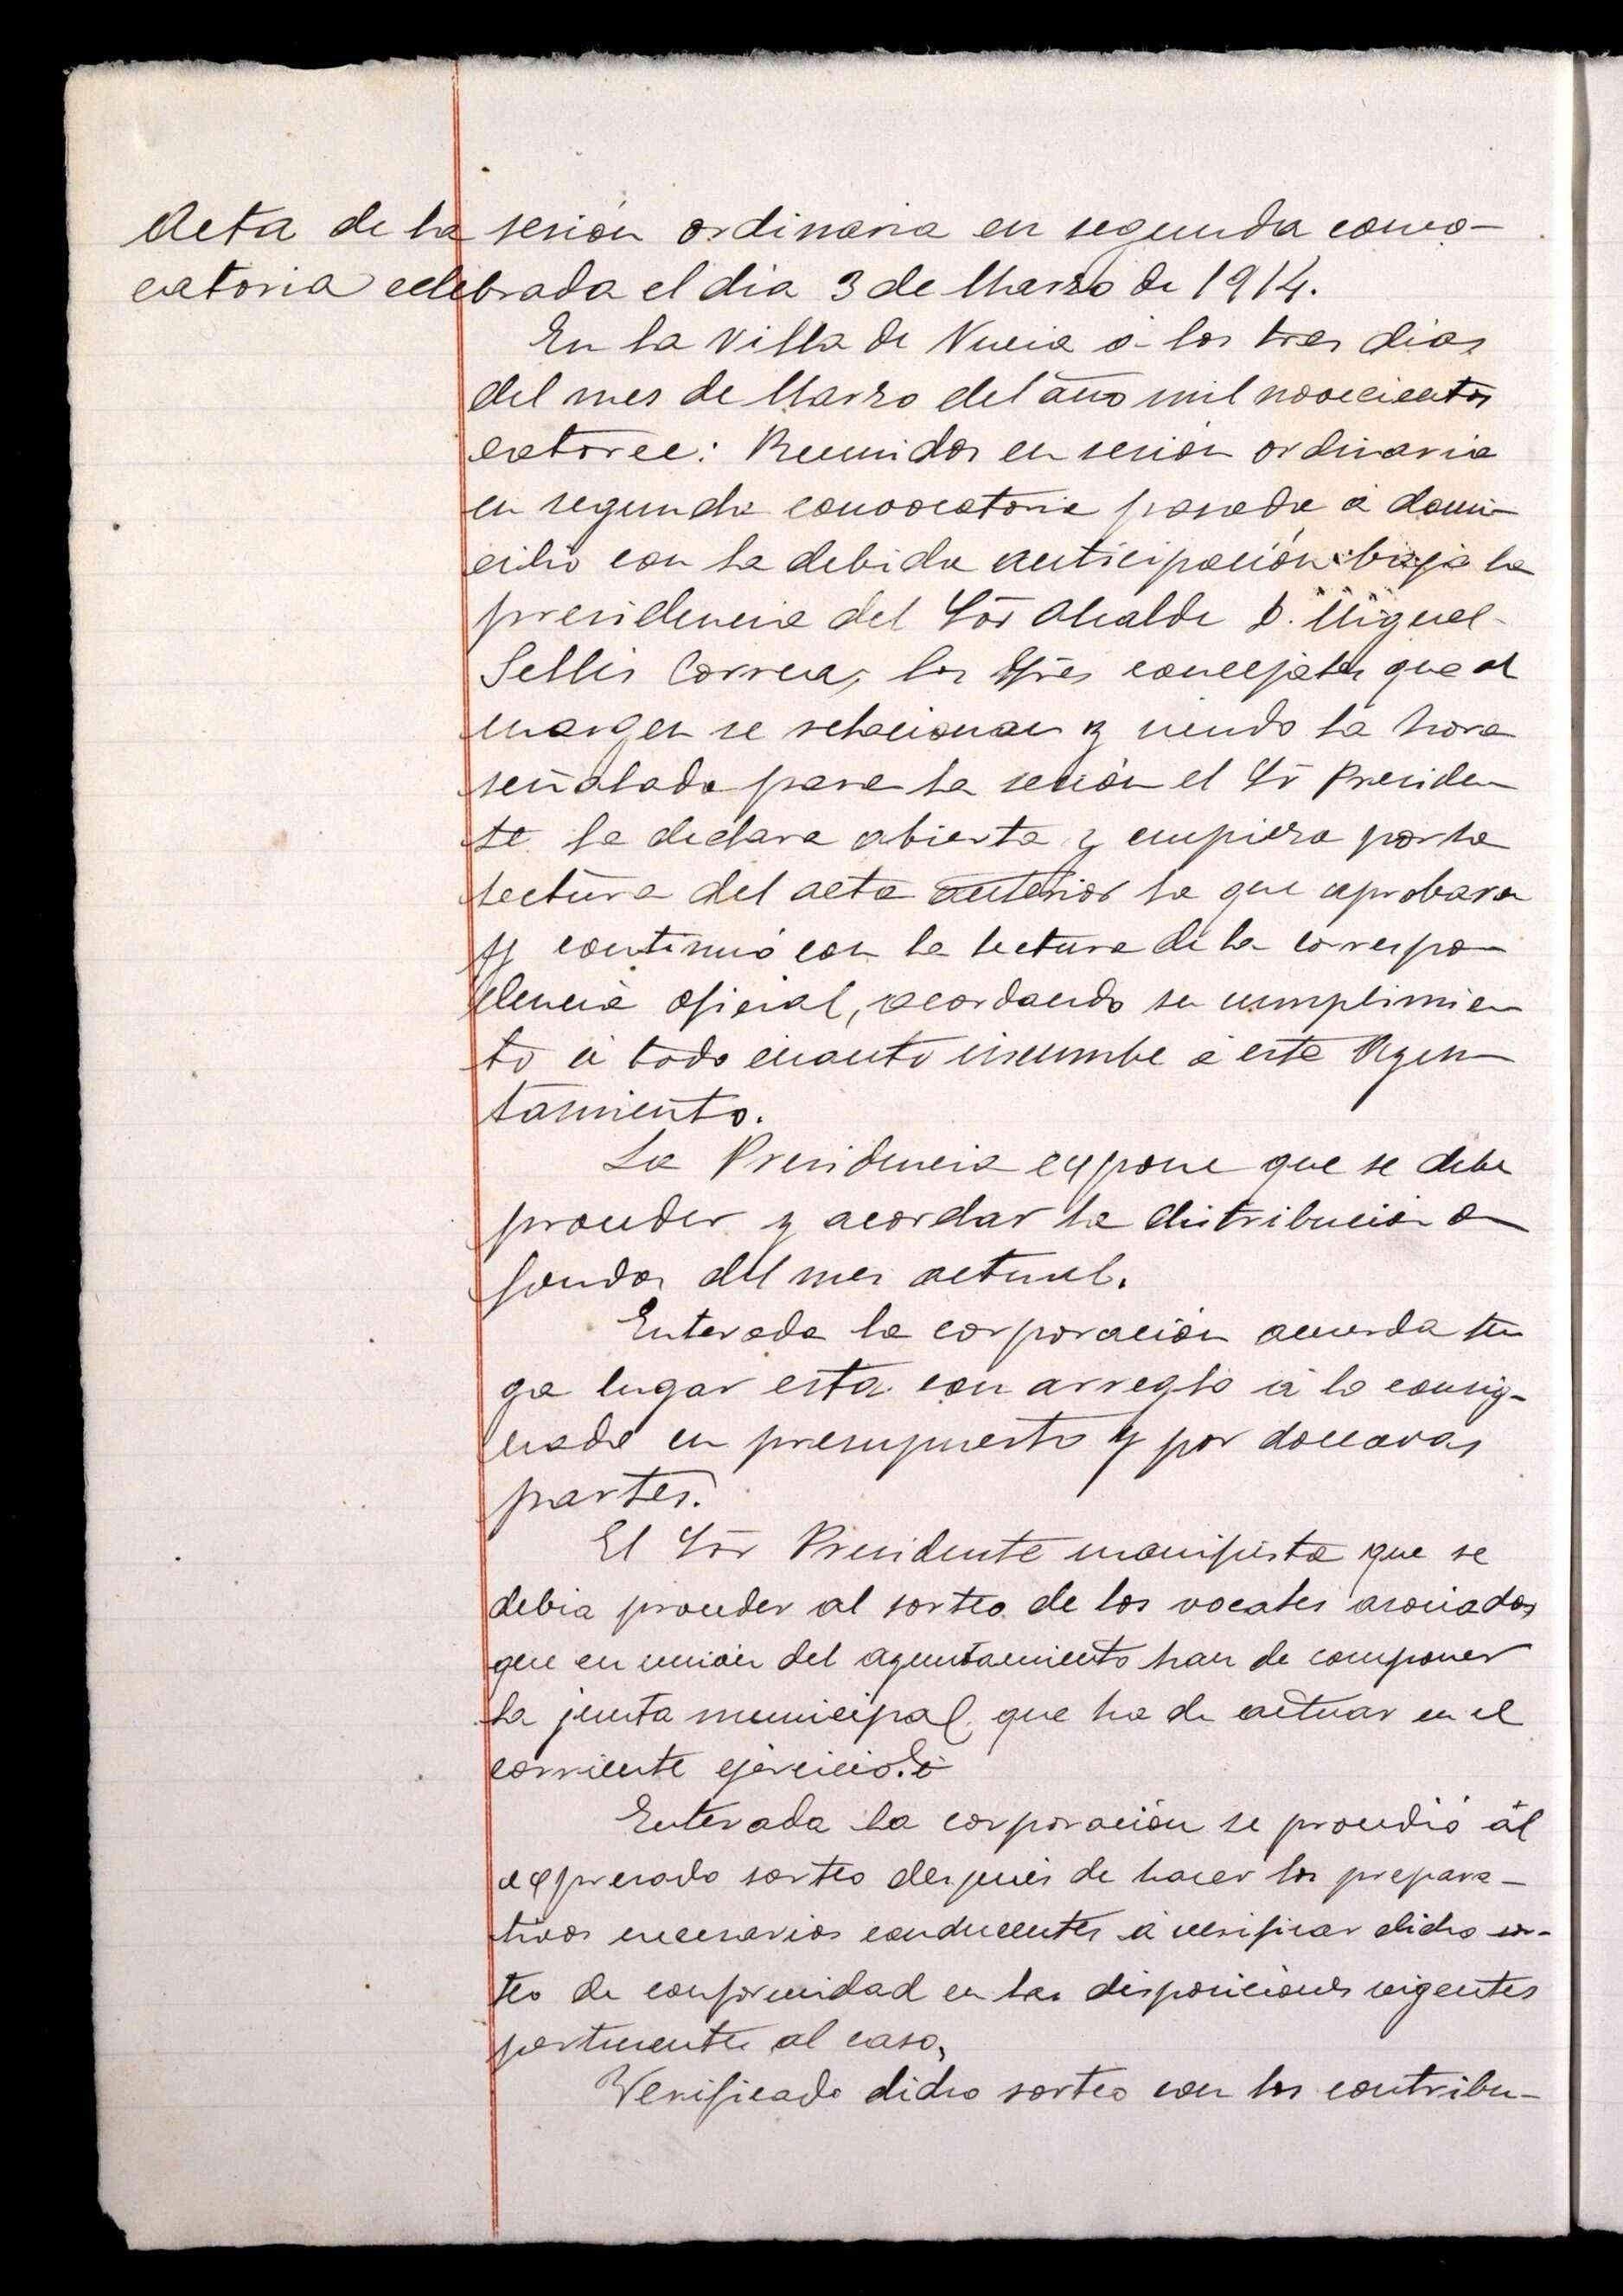 Acta de la sesión ordinaria en segunda convo-
catoria celebrada el dia 3 de Marzo de 1914.
En la Villa de Nucia á los tres dias
del mes de Marzo del año mil novecientos
catorce: Reunidos en sesión ordinaria
en segunda convocatoria pasada á domi-
cilio con la debida anticipación bajo la
presidencia del Sōr Alcalde D. Miguel
Sellés Correa, los Sres concejales que al
margen se relacionan y siendo la hora
señalada para la sesión el Sr Presiden
te la declara abierta y empieza por la
lectura del acta anterior la que aprobaron
y continuó con la lectura de la correspon
dencia oficial, acordando su cumplimien
to á todo cuanto incumbe á este Ayun
tamiento.
La Presidencia expone que se debe
proceder y acordar la distribución de
fondos del mes actual.
Enterada la corporación acuerda ten
ga lugar esta con arreglo á lo consig-
nado en presupuesto y por doceavas
partes.
El Sōr Presidente manifiesta que se
debia proceder al sorteo de los vocales asociados
que en unión del ayuntamiento han de componer
la junta municipal que ha de actuar en el
corriente ejercicio.
Enterada la corporación se procedió ál
expresado sorteo después de hacer los prepara-
tivos necesarios conducentes á verificar dicho sor-
teo de conformidad en las disposiciones vigentes
pertinentes al caso,
Verificado dicho sorteo con los contribu-